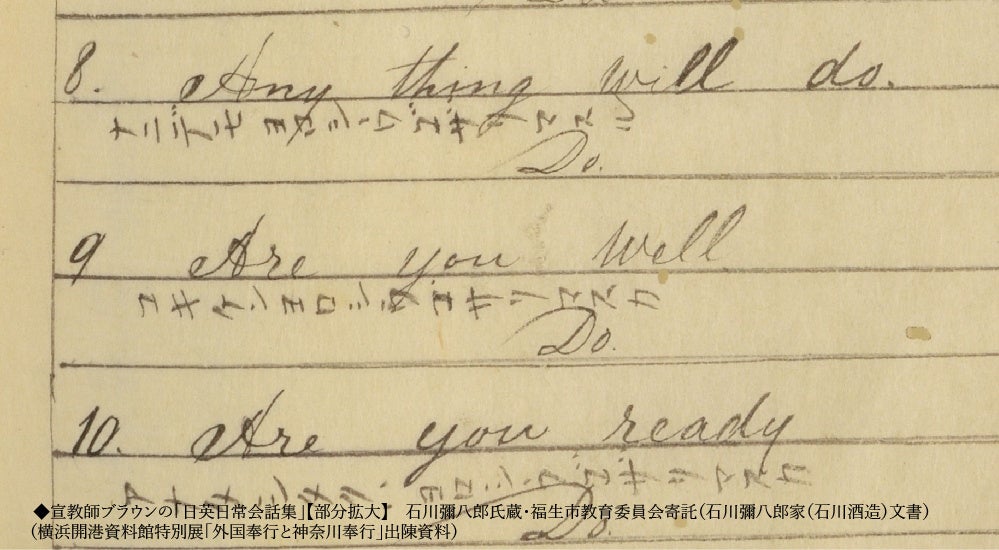 8. Any thing will do.
ナニデモヨロシウゴザリマスル
Do.
9 Are you well
ゴキケンヨロシウゴサリマスカ
Do.
10. Are you ready
ヨロシウゴザリマスカ
Do.
◆宣教師ブラウンの「日英日常会話集」【部分拡大】 石川彌八郎氏蔵・福生市教育委員会寄託(石川彌八郎家(石川酒造)文書)
(横浜開港資料館特別展「外国奉行と神奈川奉行」出陳資料)